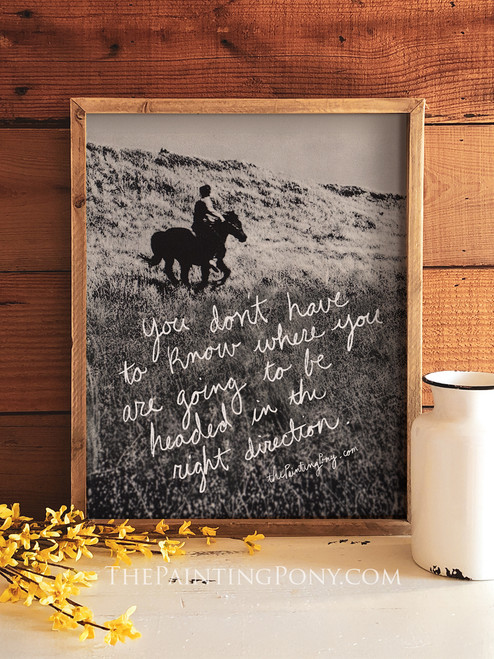 you don't have
to know where you
are going to be
headed in the
right direction.
thePaintingPony.com
THEPAINTINGPONY.COM